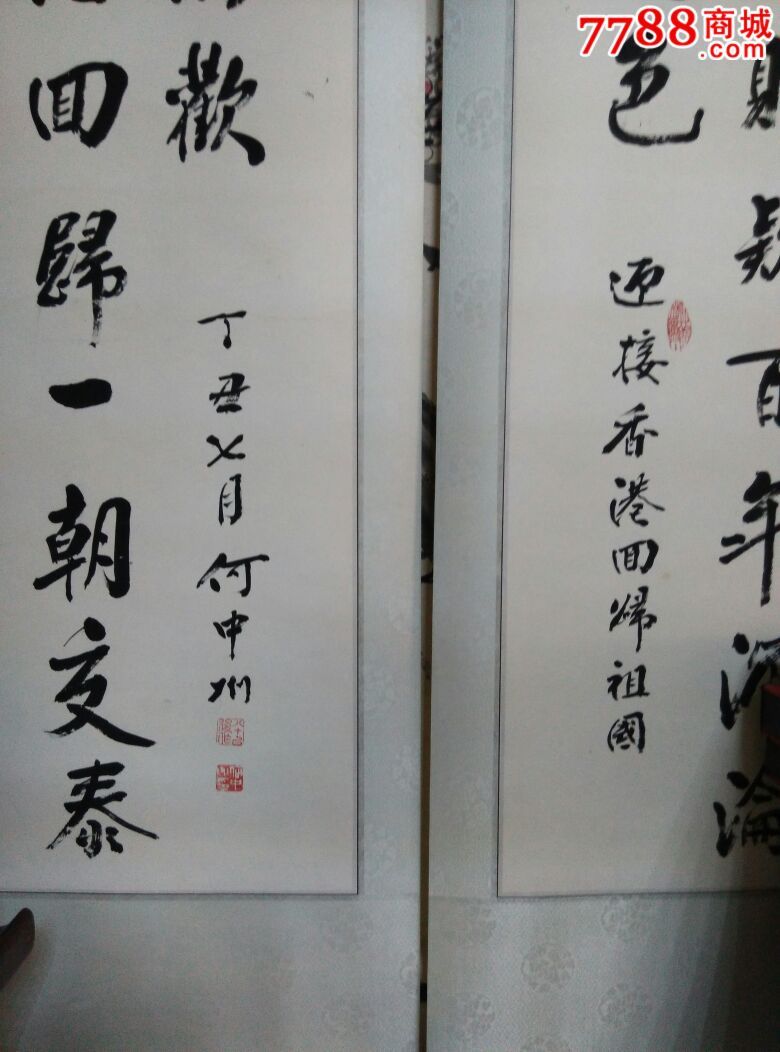 7788商城
.com
疑百年沉淪
色
迎接香港回歸祖國
歡
回歸一朝交泰
丁丑七月何申州